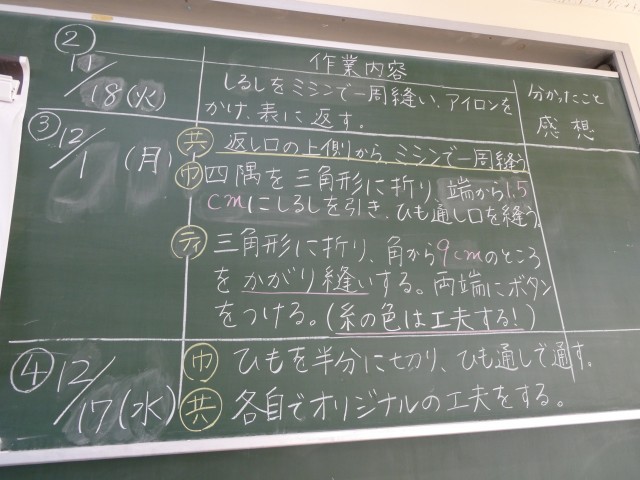 作業内容
分かったこと
感想
②
11/18(火)
しるしをミシンで一周縫い、アイロンを
かけ、表に返す。
③
12/1(月)
共 返し口の上側から、ミシンで一周縫う
巾 四隅を三角形に折り、端から1.5
cmにしるしを引き、ひも通し口を縫う。
テ 三角形に折り、角から9cmのところ
をかがり縫いする。両端にボタン
をつける。(糸の色は工夫する!)
④
12/17(水)
巾 ひもを半分に切り、ひも通しで通す。
共 各自でオリジナルの工夫をする。